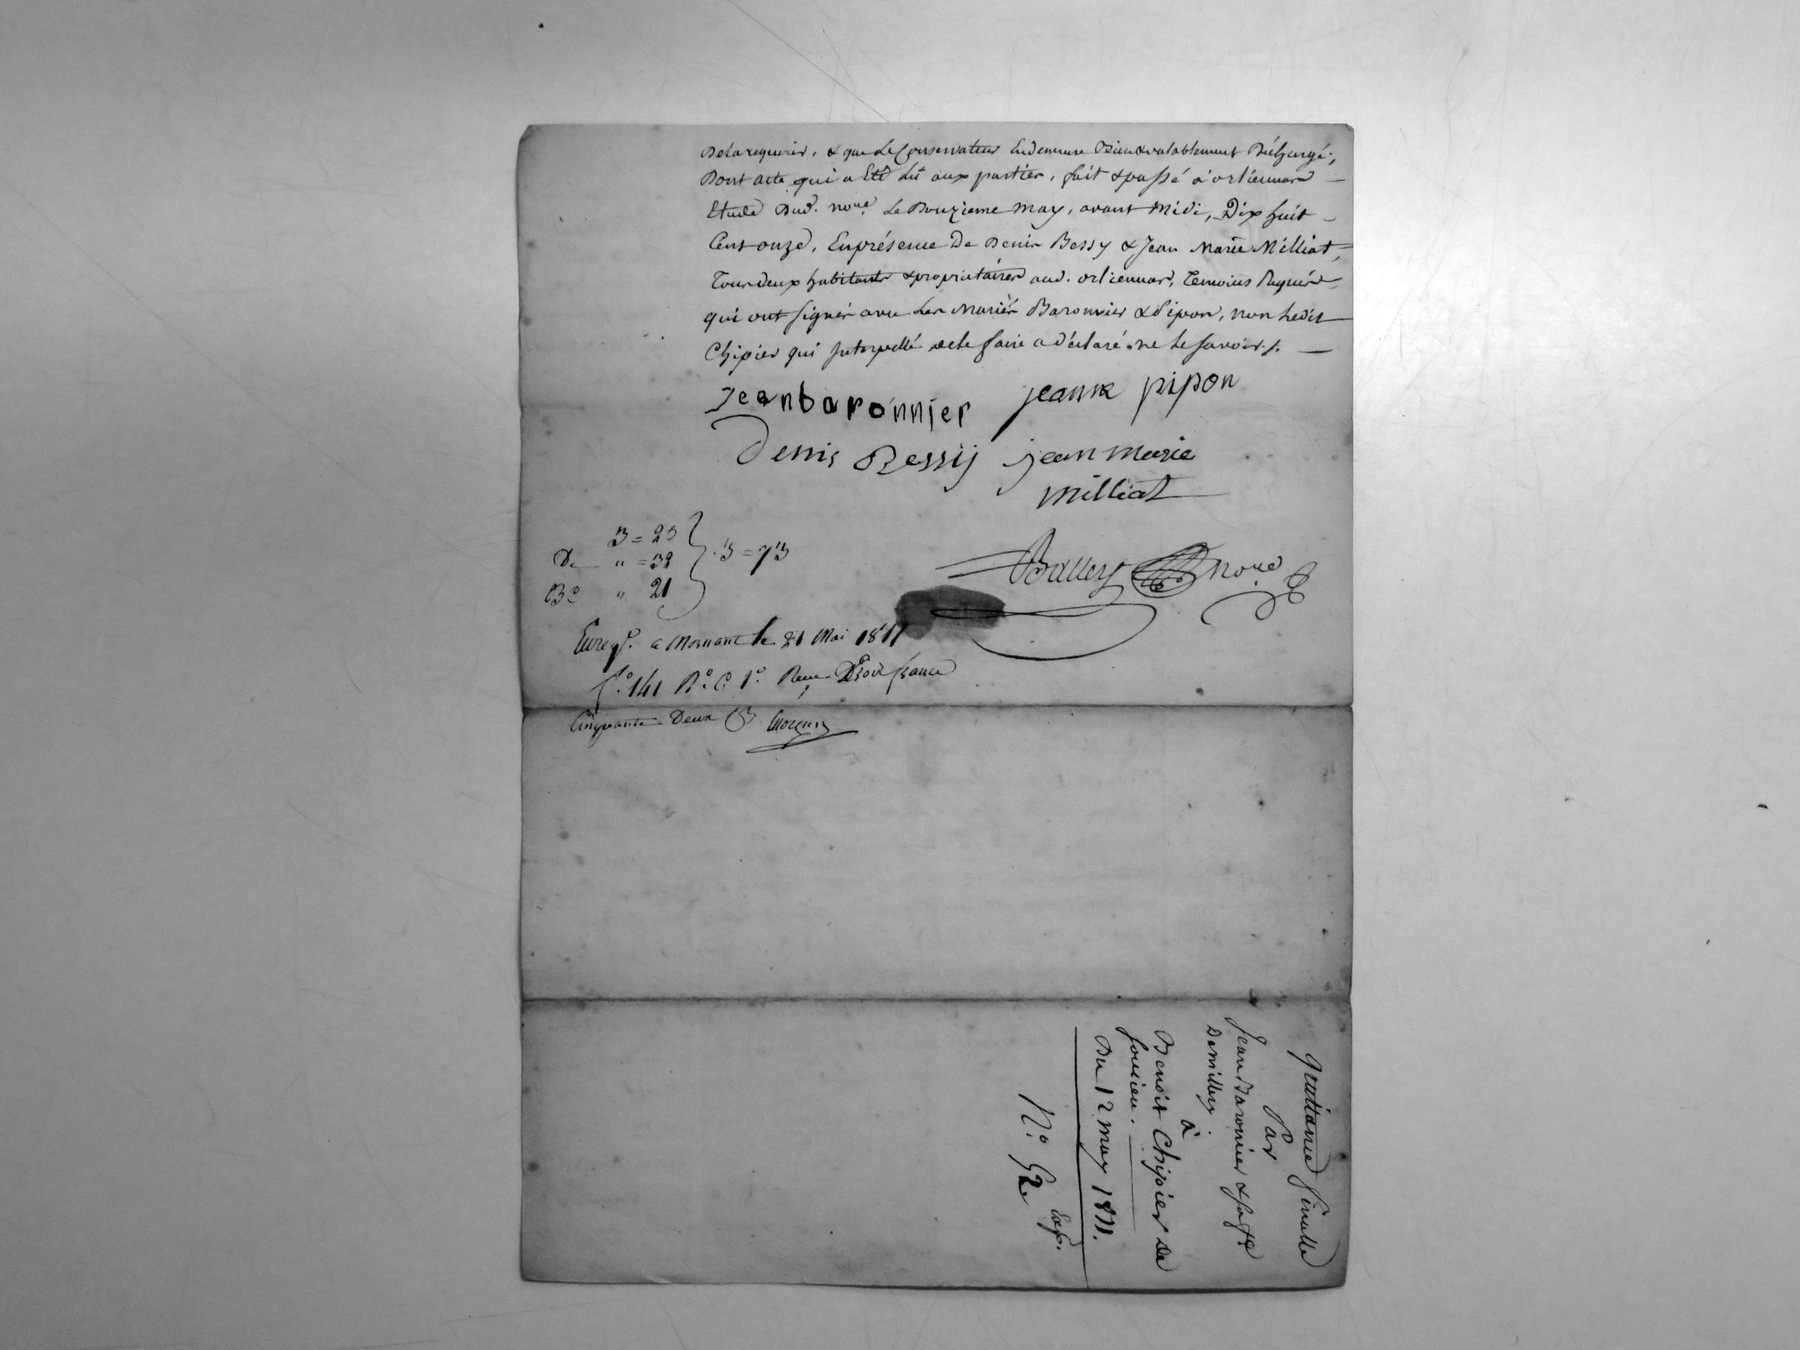 De la requerir, & que Le Conservateur En demeure Bien & valablement Déchargé;
Dont acte qui a Eté Lû aux parties, fait & passé à orliennas
Etude Dud. nore. Le Douzieme may, avant Midi, Dix huit
Cent onze, En présence De Denis Bessy & Jean Marie Milliat,
Tous deux habitants & propriétaires aud. orliennas, Temoins Requis
qui ont signés avec Les Mariés Baronnier & Pipon, non Ledit
Chipier qui Interpellé de le faire a déclaré ne Le savoir./.
Jean baronnier jeanne pipon
Denis Bessy jean marie
milliat
3 = 20
De " = 32 3 = 73
" 21
Balley nore
Enregt. a Mornant le 21 Mai 1811
fo. 141 Ro. C. 1o. Reçu Trois francs
Cinquante Deux
quittance finalle
Par
Jean Baronnier &
De millery
à
Benoit Chipier De
soucieu.
Du 12 may 1811.
No. 92 Exp.